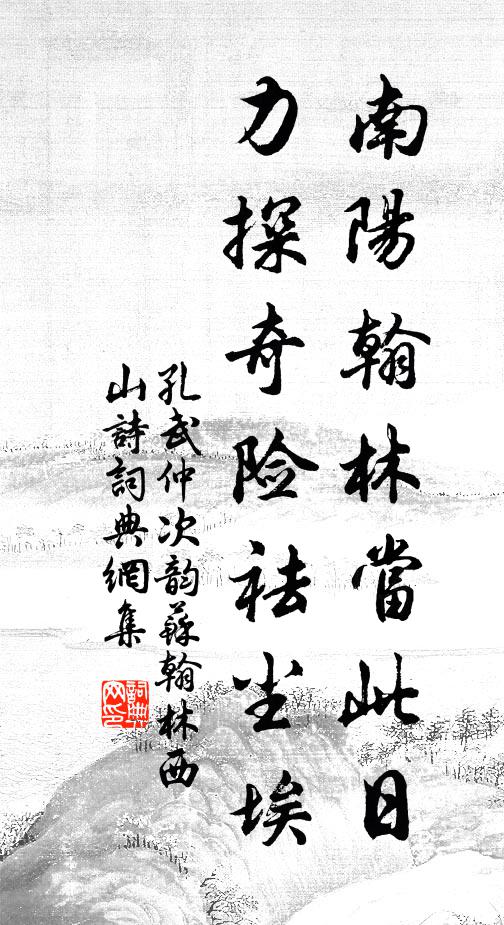 南陽翰林當此日
力探奇险祛尘埃
孔武仲次韵蘇翰林西
山詩詞典網集
詞典
网印